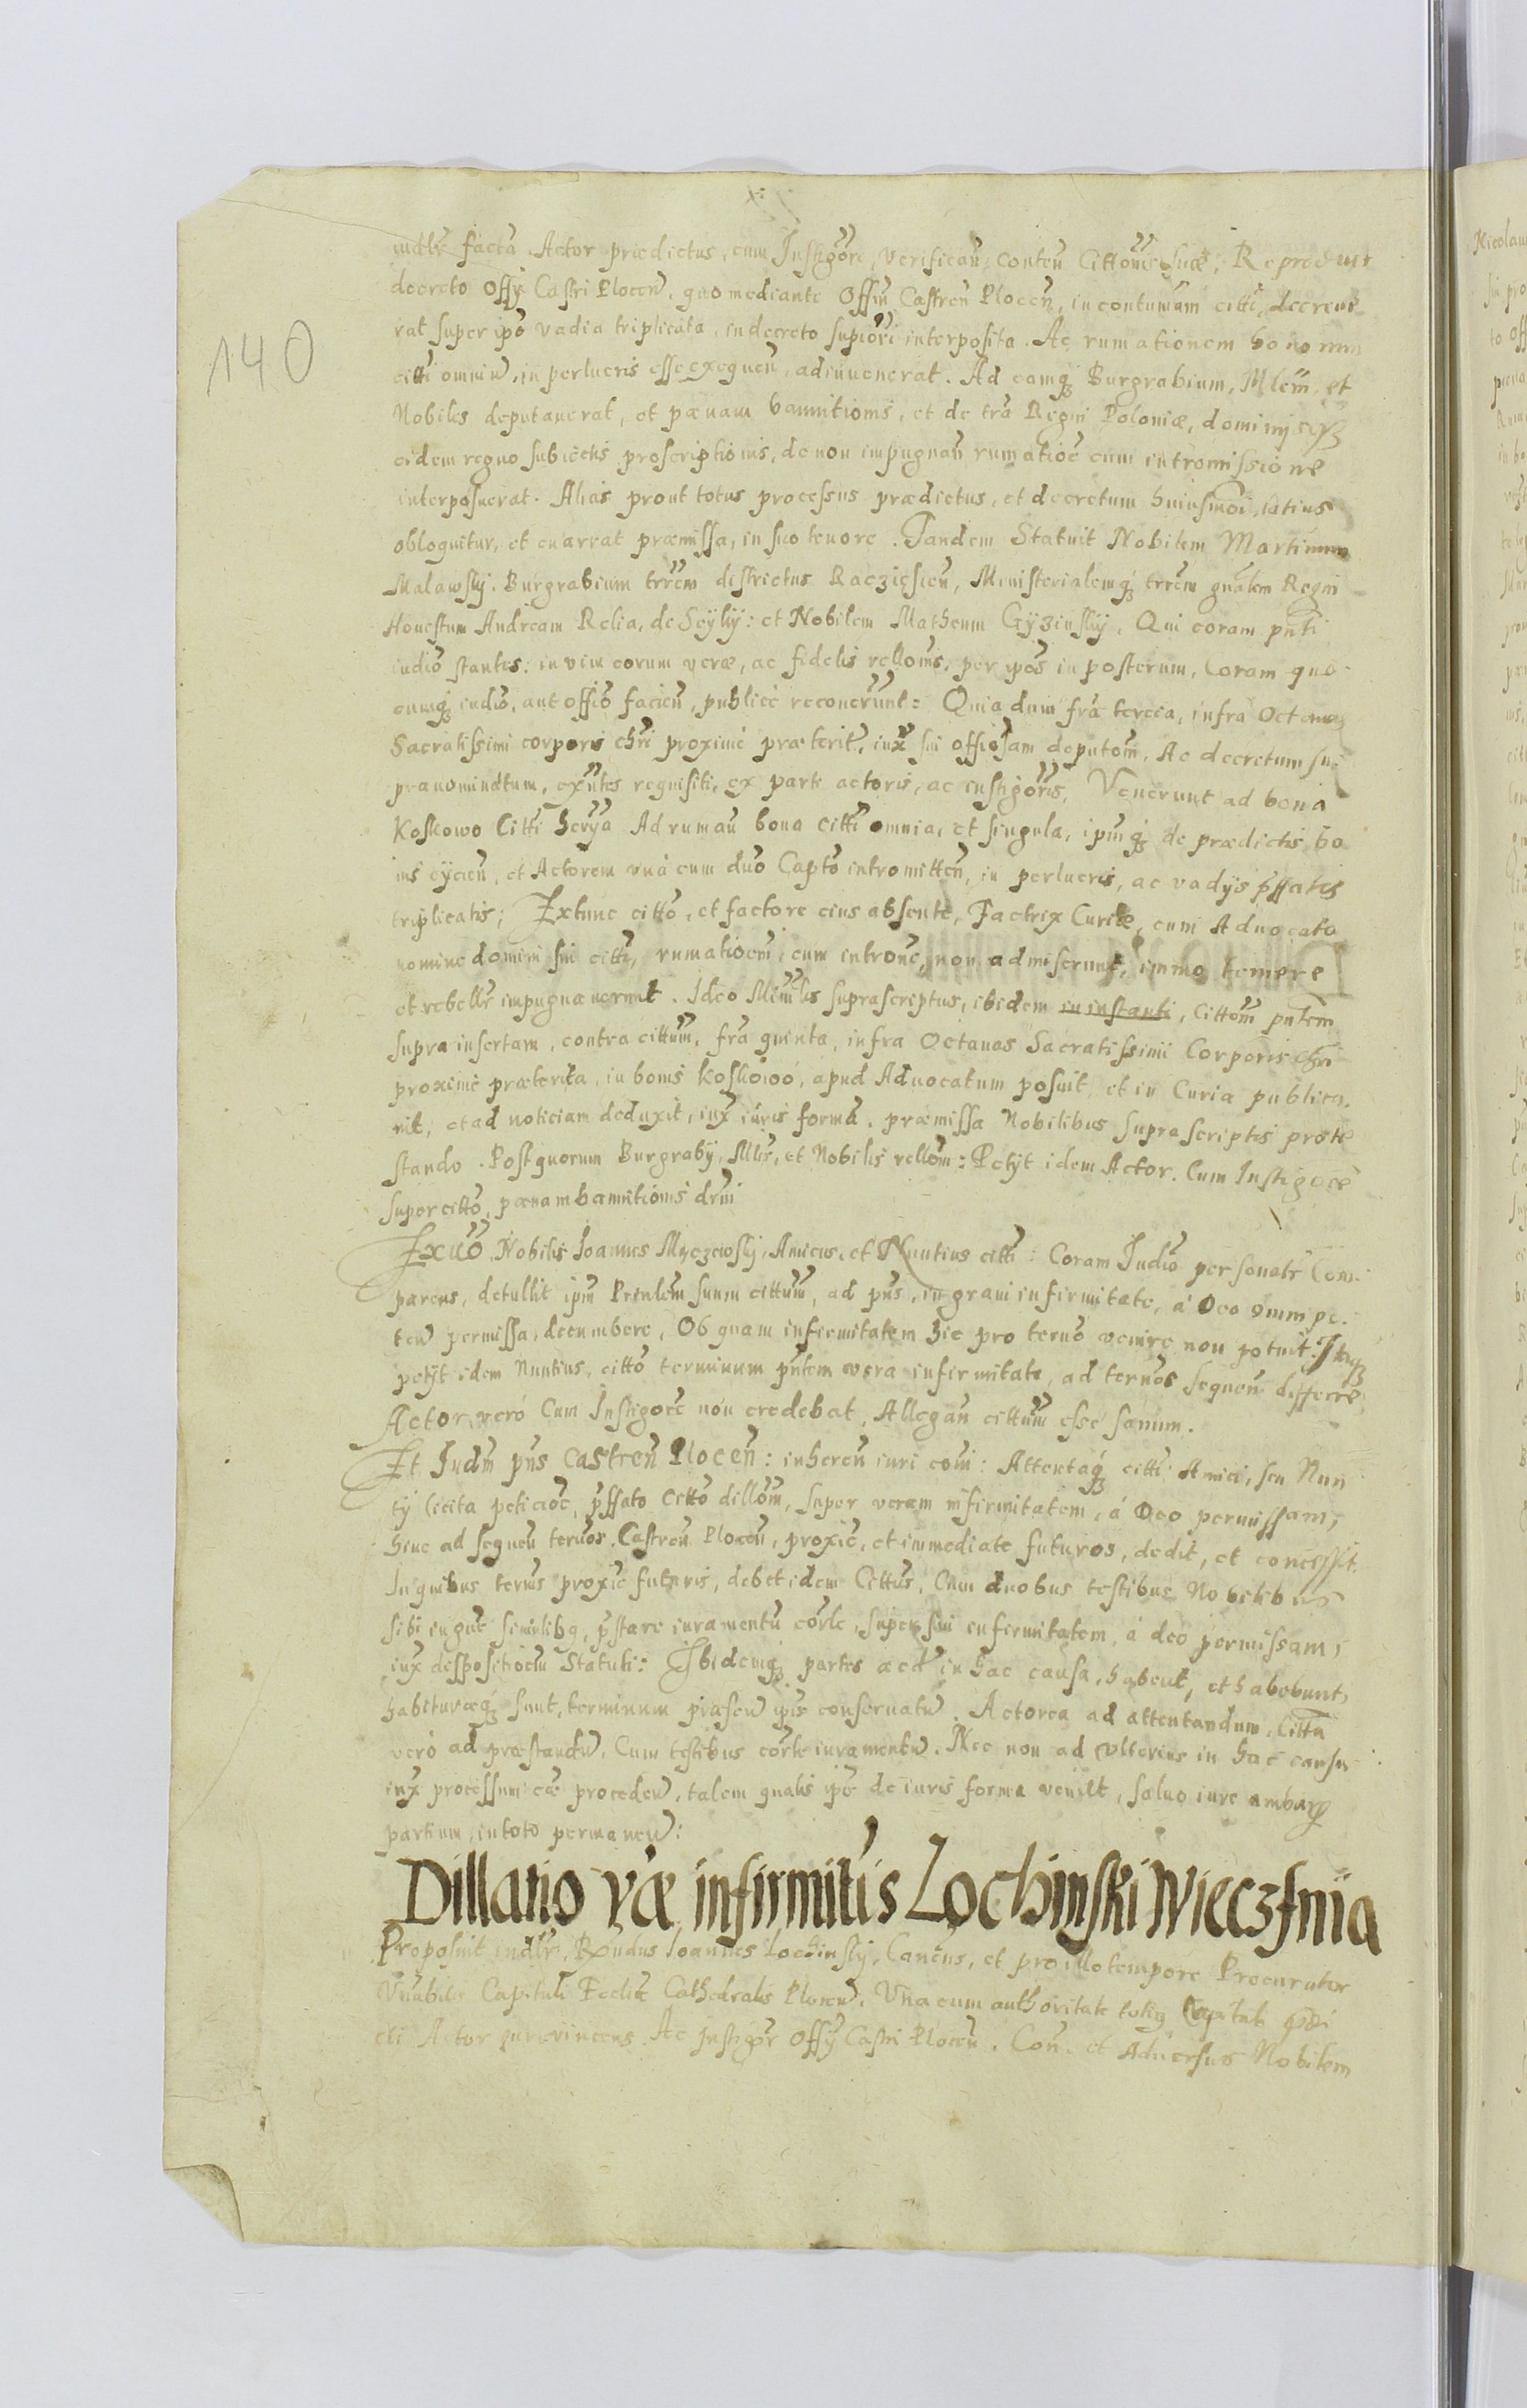 140
facta Actor prædictus, cum Instigõre, verifican̄ conten̄ Cittõnis suæ, Reproduxit
decreto Offÿ Castri Plocen̄, quo mediante Offm̄ Castren̄ Plocen̄, in contumām citti, decreve
rat super ipō vadia triplicata, in decreto supiōri interposita. Ac rumationem bonorum
citti omniū, in perlucris esse exequen̄, adinvenerat. Ad eamq Burgrabium, Mlem̄ et
Nobiles deputaverat, et pænam bannitionis, et de trā Regni Poloniæ, dominijsq
eidem regno subiectis proscriptionis, de non impugnan̄ rumatioē cum intromissione
interposuerat. Alias prout totus processus prædictus, et decretum huiusmōi, latius
obloquitur, et enarrat præmissa, in suo tenore. Tandem Statuit Nobilem Martinum
Malawskij, Burgrabium trrēm districtus Raczięsien̄, Ministerialemq trrēm gnālem Regni
Honestum Andream Relia, de Scyly: et Nobilem Matheum Gyzinskij, Qui coram pn̄ti
iudiō stantes: in vim eorum veræ, ac fidelis rellōnis, per ipōs in posterum, Coram quo
cumq iudiō, aut offiō facien̄, publicè recoverūnt: Quia dum frā tercia, infra Octavas
Sacratissimi corporis chrī proximè præterit, iux̄ sui officiosam deputōm, Ac decretum su
pranominātum, exn̄tes requisiti, ex parte actoris, ac instigōris, Venerunt ad bona
Koskowo Citti herÿa Ad ruman̄ bona citti omnia, et singula, ipm̄q de prædictis bo
nis eÿcien̄, et Actorem unà cum duō Captō intromitten̄, in perlucris, ac vadÿs p̄ffatis
triplicatis; Extunc cittō, et factore eius absente, Factrix Curiæ, cum Advocato
nomine domini sui citti, rumatioēm, cum introne, non admiserunt, immo temere
et rebellr̄ impugnaverunt. Ideo Min̄lis suprascriptus, ibidem in instanti, Cittōm pn̄tem
supra insertam, contra cittum, frā quinta, infra Octavas Sacratissimi Corporis Chrī
proximè præterita, in bonis Koskowo, apud Advocatum posuit, et in Curia publica
vit, et ad noticiam deduxit, iux̄ iuris formā. præmissa Nobilibus suprascriptis prote
stando. Post quorum Burgrabÿ, Mlis, et Nobilis rellōm: Petÿt idem Actor Cum Instigōre
super cittō, pænam bannitionis drn̄i
Exuō Nobilis Ioannes Myczewskij, Amicus, et Nuntius citti: Coram Iudiō personalr̄ Com
parens, detullit ipm̄ Prin̄lem suum cittum, ad pn̄s, in gravi infirmitate, à Deo omnipo
ten̄ permissa, decumbere, Ob quam infirmitatem hic pro ternō venire non potuit: Itaq
petÿt idem Nuntius, cittō terminum pn̄tem vera infirmitate, ad ternos sequen̄ differre
Actor verò Cum Instigōre non credebat, Allegan̄ cittum esse sanum.
Et Iudm̄ pn̄s Castren̄ Plocen̄: inheren̄ iuri comi: Attentaq citti Amici, seu Nun
tÿ licita peticioē, p̄ffato Cittō dillōm, super veram infirmitatem, à Deo permissam,
hinc ad sequen̄ ternos Castren̄ Plocen̄, proxiē, et immediate futuros, dedit, et concessit.
In quibus ternis proxiē futuris, debet idem Cittus, Cum duobus testibus Nobilibus
sibi in gn̄e similibq, p̄stare iuramentū corle, super sui infirmitatem, à deo permissam,
iux̄ dispositioēm Statuti: Ibidemq partes in hac causa, habent, et habebunt,
habituræq sunt, terminum præsen̄ ipis conservatū. Actorea ad attentandum, Citta
verò ad præstandū, Cum testibus corle iuramentū. Nec non ad ulterius in hac causa
iux̄ processum eæ proceden̄, talem qualis ipē de iuris forma venilt, salvo iure ambarq
partium, in toto permanen̄:
Dillatio væ infirmit̄is Lochinski Wieczfnia
Proposuit iudlr̄, Rn̄dus Ioannes Lochinskij, Canēus, et pro illo tempore Procurator
Vn̄abilis Capituli Ecclīæ Cathedralis Plocen̄, Una cum authoritate totiq Capituli prædi
cti Actor iurevincens. Ac Instigōr Offÿ Castri Plocen̄. Con̄. et Adversus Nobilem